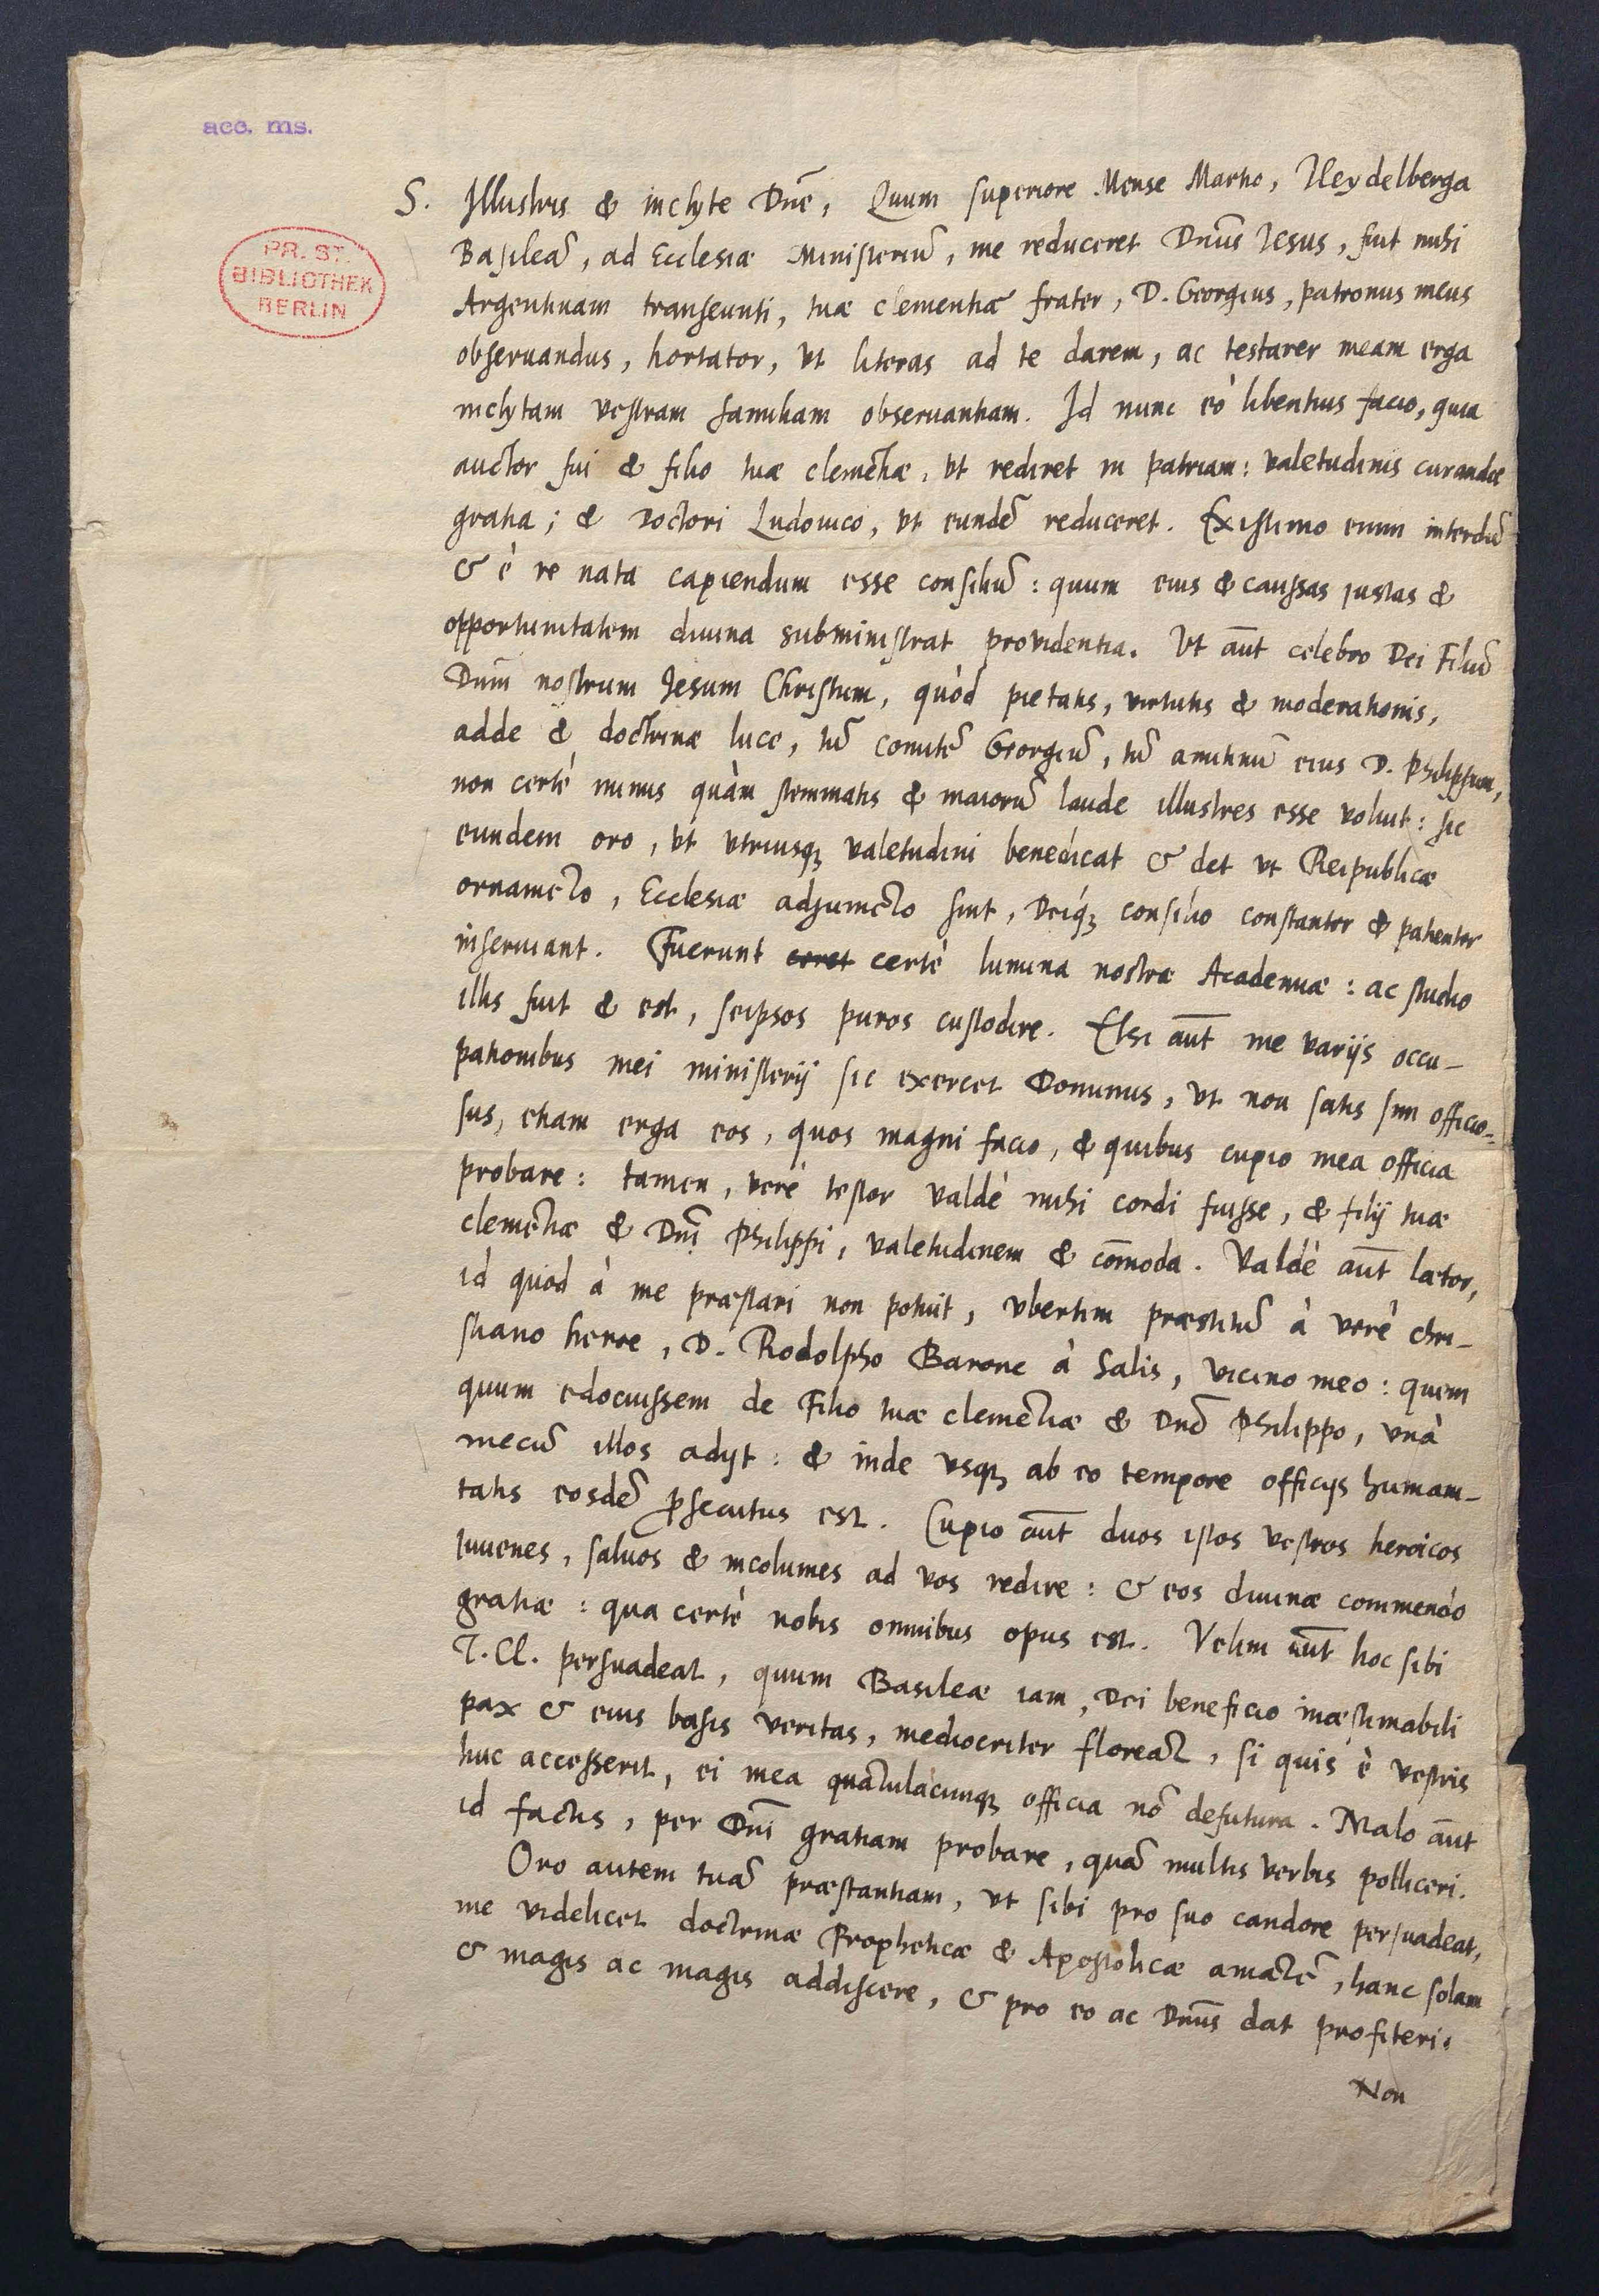 acc. ms.
PR. ST.
BIBLIOTHEK
BERLIN
S. Illustris & inclyte Dñe, Quum superiore Mense Martio, Heydelberga
Basileã, ad Ecclesiæ Ministeriũ, me reduceret Dnũs Iesus, fuit mihi
Argentinam transeunti, tuæ clementiæ frater, D. Georgius, patronus meus
obseruandus, hortator, vt literas ad te darem, ac testarer meam erga
inclytam vestram familiam obseruantiam. Id nunc eò libentius facio, quia
auctor fui & filio tuæ clemẽtiæ, vt rediret in patriam: valetudinis curandæ
gratia; & Doctori Ludouico, vt eundẽ reduceret. Existimo enim interdũ
& è re nata capiendum esse consiliũ: quum eius & caussas iustas &
opportunitatem diuina subministrat providentia. Vt aũt celebro Dei Filiũ
Dnm̃ nostrum Jesum Christum, quòd pietatis, virtutis & moderationis,
adde & doctrinæ luce, tũ comitẽ Georgiũ, tũ amitinũ eius D. Philippum,
non certè minus quàm stemmatis & maiorũ laude illustres esse voluit: sic
eundem oro, vt vtriusq; valetudini benedicat & det vt Reipublicæ
ornamẽto, Ecclesiæ adjumẽto sint, Deíq; consilio constanter & patienter
inseruiant. Fuerunt certè lumina nostræ Academiæ: ac studio
illis fuit & est, seipsos puros custodire. Etsi aũt me varijs occu-
pationibus mei ministerij sic exercet Dominus, vt non satis sim officio-
sus, etiam erga eos, quos magni facio, & quibus cupio mea officia
probare: tamen, verè testor valdè mihi cordi fuisse, & filij tuæ
clemẽtiæ & Dnĩ Philippi, valetudinem & com̃oda. Valdè aũt lætor,
id quod à me præstari non potuit, vbertim præstitũ à verè chri-
stiano heroe, D. Rodolpho Barone à Salis, vicino meo: quem
quum edocuissem de Filio tuæ clemẽtiæ & Dnõ Philippo, vnà
mecũ illos adijt: & inde vsq; ab eo tempore officijs humani-
tatis eosdẽ p̱secutus est. Cupio aũt duos istos vestros heroicos
iuuenes, saluos & incolumes ad vos redire: & eos diuinæ commendo
gratiæ: qua certè nobis omnibus opus est. Velim aũt hoc sibi
T. Cl. persuadeat, quum Basileæ iam, Dei beneficio inæstimabili
pax & eius basis veritas, mediocriter floreãt, si quis è vestris
huc accesserit, ei mea quãtulacunq; officia nõ defutura. Malo aũt
id factis, per Dnĩ gratiam probare, quã multis verbis polliceri.
Oro autem tuã præstantiam, vt sibi pro suo candore persuadeat,
me videlicet doctrinæ Propheticæ & Apostolicæ amãtẽ, hanc solam
& magis ac magis addiscere, & pro eo ac Dnũs dat profiteri.
Non